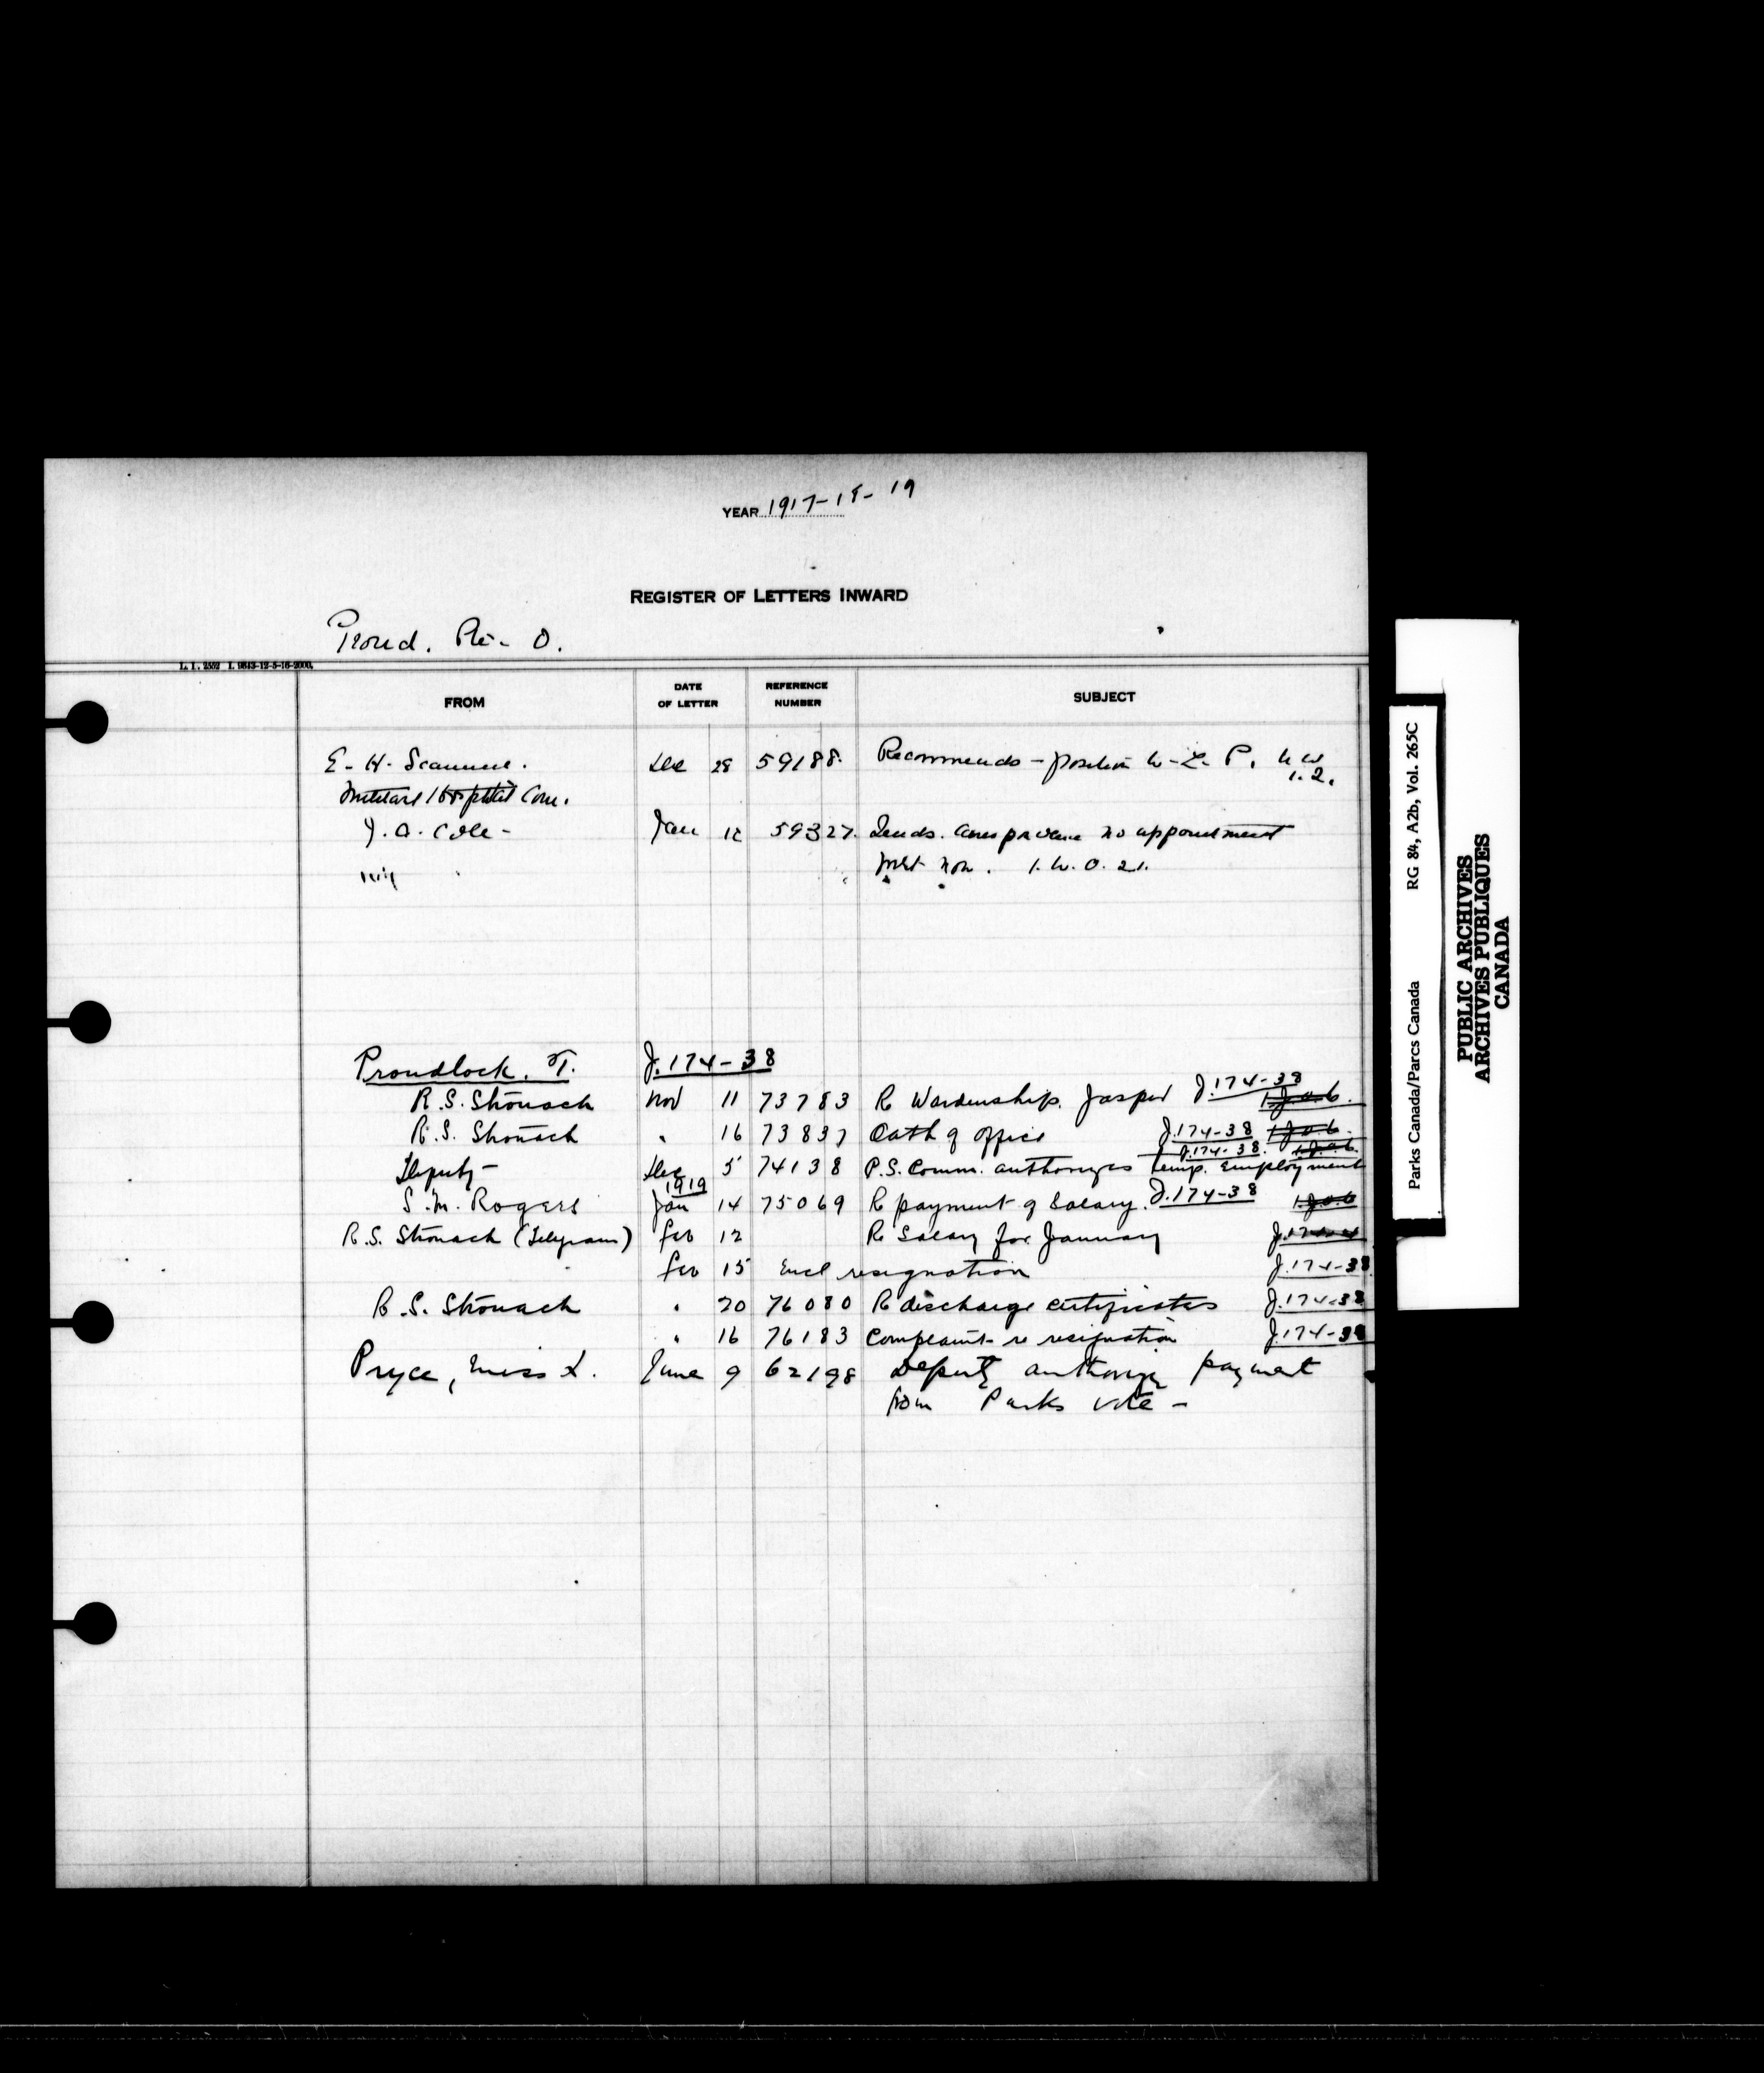 YEAR 1917-18-19
REGISTER OF LETTERS INWARD
Proud. Pte. O.
L. I. 2552 I. 9843-12-5-16-2000.
FROM DATE OF LETTER REFERENCE NUMBER SUBJECT
E. H. Scammell. Dec 28 59188. Recommends - position W. L. P. U W 1.2.
Military Hospital Com.
J. A. Cole - Jan 12 59327. Sends. no appointment
1. W. O. 21.
Proudlock. T. J.174-38
R.S. Stronach Nov 11 73783 R Wardenship. Jasper J.174-38 1 J.o.6.
R.S. Stronach " 16 73837 Oath of office J.174-38 1 J.o.6.
J.174-38. 1 J.o.6.
Deputy - Dec 5 74138 P.S. Comm. authorizes temp. employment
1919
S. M. Rogers Jan 14 75069 R payment of Salary. J.174-38 1 J.o.6
R.S. Stronach (Telegram) Feb 12 R Salary for January
Feb 15 Encl resignation J.174-38
R.S. Stronach " 20 76080 R discharge certificates J.174-38
" 16 76183 Complaint re resignation J.174-38
Pryce, Miss L. June 9 62198 Deputy authorizes payment
from Parks vote -
Parks Canada/Parcs Canada RG 84, A2b, Vol. 265C
PUBLIC ARCHIVES
ARCHIVES PUBLIQUES
CANADA